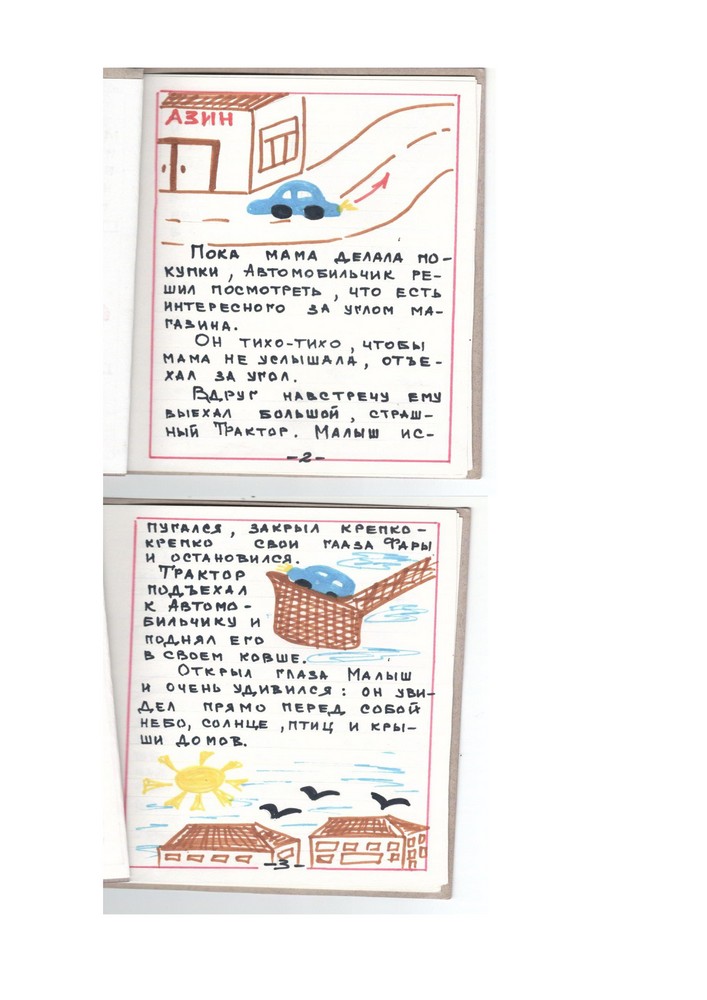 АЗИН
Пока мама делала по-
купки, Автомобильчик ре-
шил посмотреть, что есть
интересного за углом ма-
газина.
Он тихо-тихо, чтобы
мама не услышала, отъе-
хал за угол.
Вдруг навстречу ему
выехал большой, страш-
ный Трактор. Малыш ис-
-2-
пугался, закрыл крепко-
крепко свои глаза Фары
и остановился.
Трактор
подъехал
к Автомо-
бильчику и
поднял его
в своем ковше.
Открыл глаза Малыш
и очень удивился: он уви-
дел прямо перед собой
небо, солнце, птиц и кры-
ши домов.
-3-